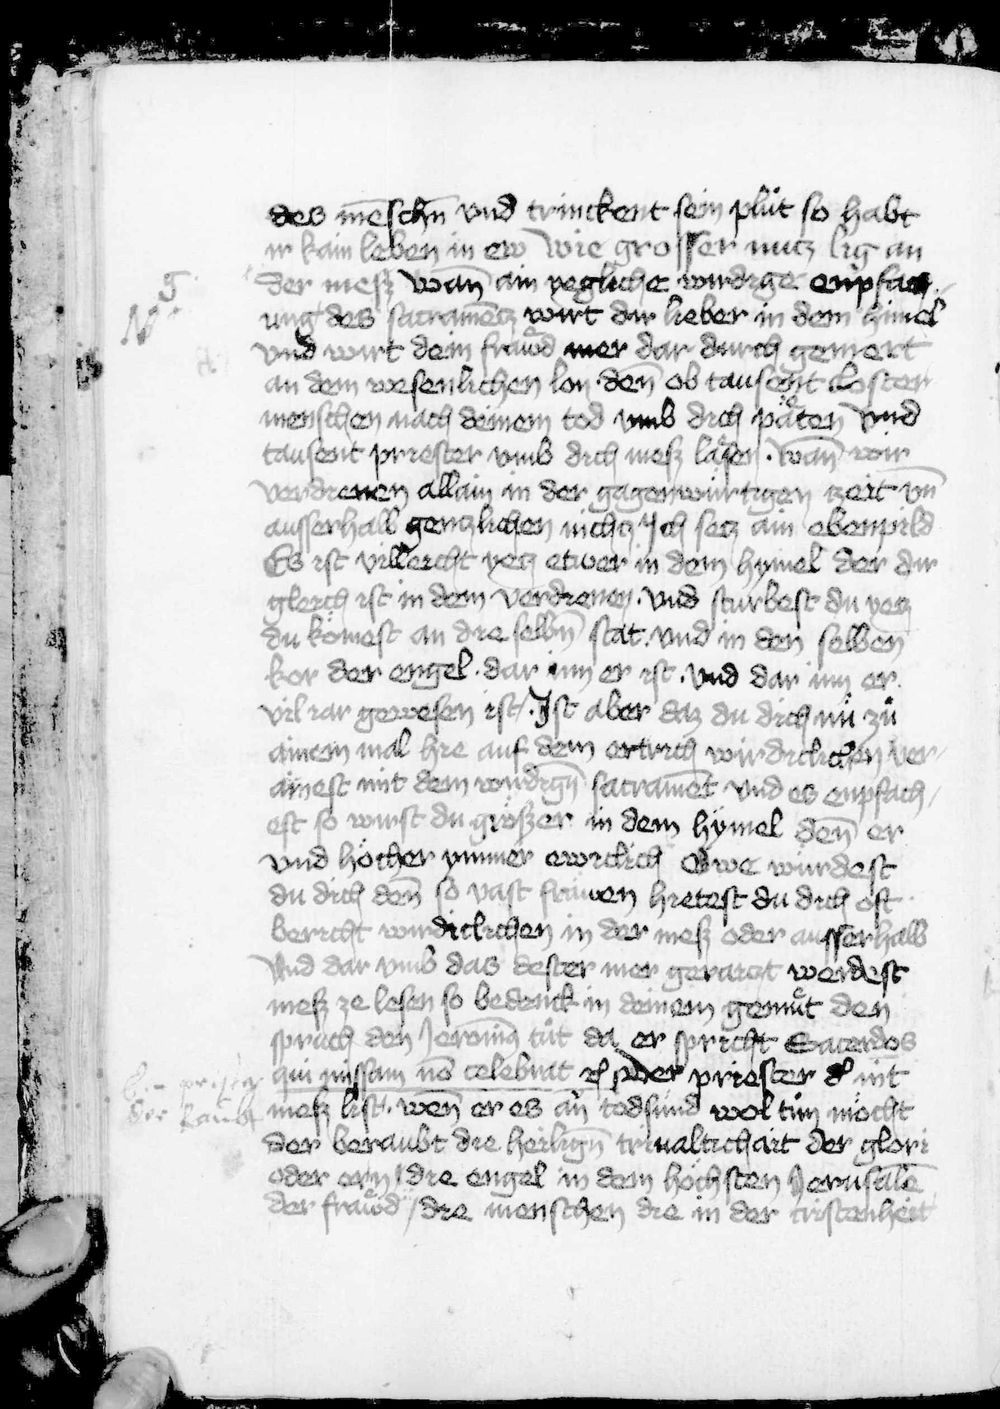 des mēschn̄ vnd trinckent sein plu̍t so habt
ir kain leben in ew Wie grosser nutz lig an
der mesz wan̄ ain yegliche wirdige enpfach
ung des sacramētz wirt dir lieber in dem himel
vnd wirt dein fraẘd mer dar durch gemert
an dem wesenlichen lon den̄ ob tausent closter
menschen nach deinem tod vmb dich pa̍ten vnd
tausent priester vmb dich mesz läsen. wan̄ wir
verdienen allain in der gagenwürtigen tzeit vn̄
ausserhalb gentzlichen nichtz Ich setz ain ebenpild
Es ist villeicht yetz etwer in dem hymel der dir
gleich ist in dem verdienen. vnd sturbest du yetz
du kömest an die selbn̄ stat. vnd in den selben
kor der engel. dar inn er ist. vnd dar inn er
vil iar gewesen ist. Ist aber daz du dich nu̍ zu̍
ainem mal hie auf dem ertrich wirdiclichen ver
ainest mit dem wirdign̄ sacramēt vnd es enpfach
est so wirst du grösser in dem hymel den̄ er
vnd höcher ymmer ewiclich Owe würdest
du dich den̄ so vast fräwen hietest du dich oft
bericht wirdiclichen in der mesz oder ausserhalb
Vnd dar vmb das dester mer geraitzt werdest
mesz ze lesen so bedenck in deinem gemu̍t den
spruch den Jeronimus tu̍t da er spricht Sacerdos
qui missam nō celebrat &c der priester d' nit
mesz list. wen̄ er es an̄ todsünd wol tu̍n möcht
der beraubt die heilign̄ triualtichait der glori
oder ern / die engel in dem höchsten Jerusalē
der fraẘd / die menschen die in der cristenheit